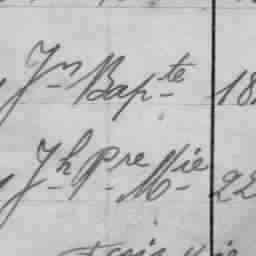 Jn Bapte 18
Jh Pre Mie 22